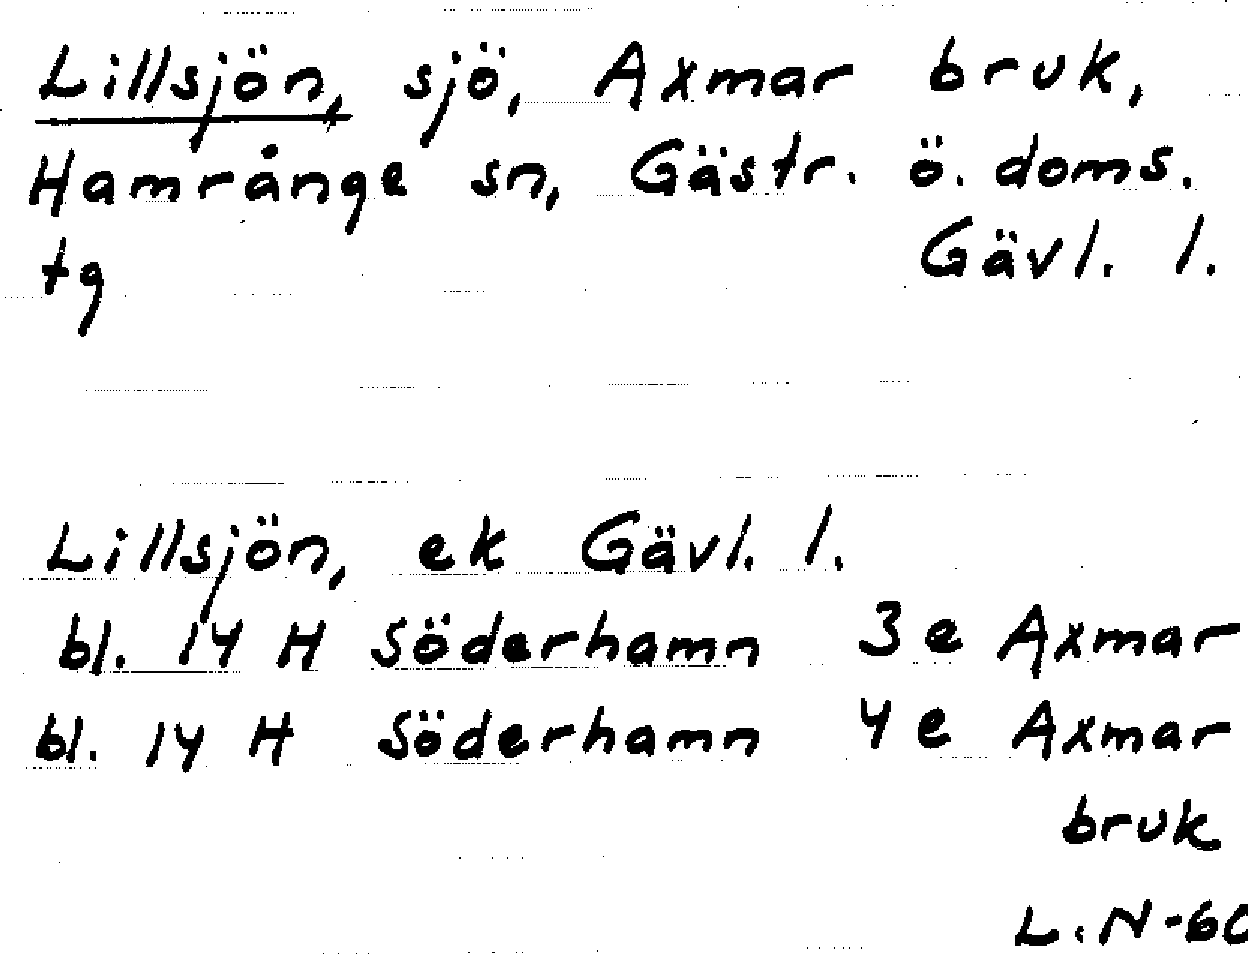 Lillsjön, sjö, Axmar bruk,
Hamrånge sn, Gästr. ö. doms.
tg Gävl. l.
Lillsjön, ek Gävl. l.
bl. 14 H Söderhamn 3 e Axmar
bl. 14 H Söderhamn 4 e Axmar
bruk
L.N-60